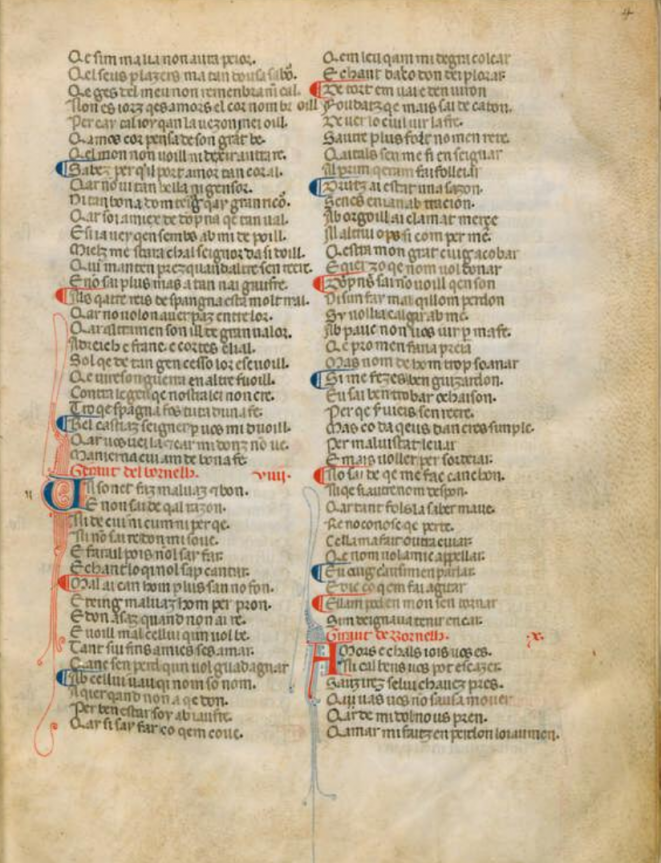 4
Qe sim malia non aura peior.
Qel seus plazers ma tan dousa sabor.
Qe ges del meu non remenbram cal.
Non es iorz qes amors el cor nom br oill
Per car cal ior qan la ue zom mei oill.
Qamos cor pensa de son grat be.
Qel mon non uoill ni dezir autra re.
Sabez per qil port amor tan coral.
Qar no ui tan bella ni gensor.
Ni tan bona dom
Qar soi amics de dopna qe tan ual.
E si a uer qen sembs ab mi de poill.
Mielz me stara chal seignor da si doill.
Qui manten paez quand altre sen recre.
E no sai plus mas a tan nai gaufre.
Als qatre reis de spangna esta molt mal.
Qar no uolon auer paz entre lor.
Qar altramen son ill de gran ualor.
Adreich e franc e cortes e lial.
Sol qe de tan gen cesso lor escuoill.
Qe uireson guerra en altre fuoill.
Contra le gen qe nostra lei non cre.
Tro qe spagna fos tuta duna fe.
Bel castiaz seigner p uos mi duoill.
Qar uos uei la zear mi donz no ue.
Na nierna cui am de bona fe.
Giraut del bornelh. viiii.
Un sonet faz maluaz e bon.
E non sai de qal razon.
Ni de cui ni cum ni per qe.
Ni no sai re don mi soue.
E farai l pois nol sai far.
E chant lo qi nol sap cantar.
Mal ai can hom plus san no fon.
E teing maluaz hom per pron.
E don asaz quand non ai re.
E uoill mal cellui qim uol be.
Tant sui fins amics ses amar.
Canc sen perd qim uol guadagnar
Ab cellui uau qi nom so nom.
A quier qand non a qe don.
Per ben estar soi ab iaufre.
Qar si sai far co qem coue.
Qem leu qam mi degra colcar
E chant dazo don dei plorar
De tort em uai e den uiron
Foudatz qe mais sai de caton.
De uer lo ciul uir la fre.
Saultre plus fols no men rete.
Qaitals sen me fi en seignar
Al prim qeram fai folleiar
Drutz ai estat una sazon.
Senes enian ab tracion.
Ab orgoill ai clamat merce
Al altrui ops si com per me.
Qestra mon grat cuig acobar
E qier zo qe nom uol donar
Dopns sai no uoill qen son
Disun far mal qillom perdon
Sy uollia calgar ab me.
Ab pauc non uos uir p ma fe.
Qe pro men fana preia
Mas nom de hom trop soanar
Si me fezes ben guizardon.
Eu sai ben trobar ochaison.
Per qe
Mas co da qeus dan eres simple.
Per maluistat leuar
E mais uoller per sordeiar.
No sai de qe me fac cancbon.
Ni qe si autre nom despon.
Qar tant fols la saber maue.
Re no conosc qe perte.
Cella ma fait outra cuiar.
Qe nom uol amic appellar.
Eu cuig e ausim en parlar.
E dic co qem fai aguar
Ellam poden mon sen tornar
Sim deignaua tener en car.
Giraut de Bornelh. x.
Amors e challs iois uos es.
Ni cal bens uos pot escazer.
Sautrez selui chauez pres.
Qui uas uos no sausa mouer
Qar de mi dolno us pren.
Qamar mi fautz en perdon loiaumen.